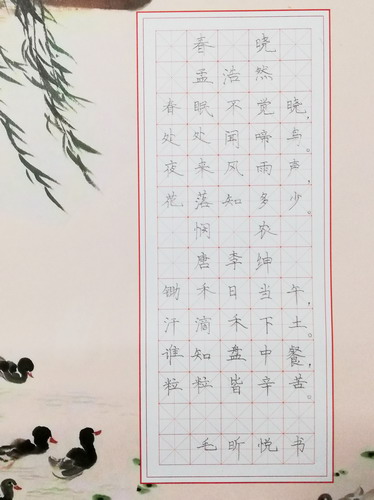 春晓
孟浩然
春眠不觉晓，
处处闻啼鸟。
夜来风雨声，
花落知多少。
悯农
唐李绅
锄禾日当午，
汗滴禾下土。
谁知盘中餐，
粒粒皆辛苦。
毛昕悦书